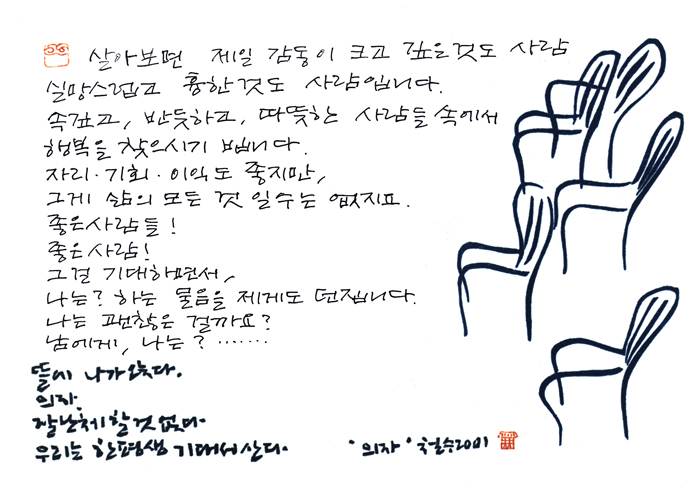 살아보면 제일 감동이 크고 깊은것도 사람
실망스럽고 흉한것도 사람입니다.
속깊고, 반듯하고, 따뜻한 사람들 속에서
행복을 찾으시기 빕니다.
자리·기회·이익도 좋지만,
그게 삶의 모든 것 일수는 없지요.
좋은사람들!
좋은사람!
그걸 기대하면서,
나는? 하는 물음을 제게도 던집니다.
나는 괜찮은 걸까요?
남에게, 나는? .......
뜰에 나가 앉다.
의자.
잘난체 할 것 없다.
우리는 한평생 기대서 산다.
'의자' 철수2001